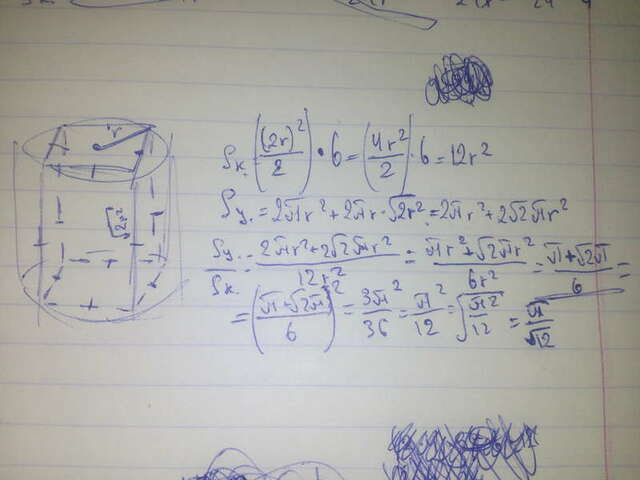 r
√2r²
Sк. ((2r)²/2) • 6 = (4r²/2) · 6 = 12r²
Sy. = 2πr² + 2πr · √2r² = 2πr² + 2√2πr²
Sy./Sк. = (2πr² + 2√2πr²)/12r² = (πr² + √2πr²)/6r² = (π + √2π)/6 =
= ((π + √2π)/6)² = 3π²/36 = π²/12 = √(π²/12) = π/√12